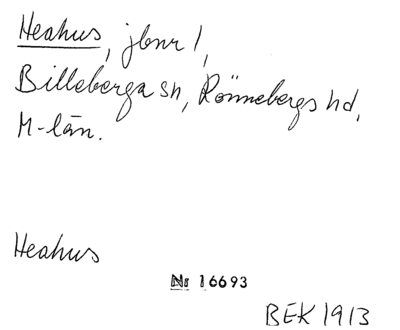 Heahus, jbnr 1,
Billeberga sn, Rönnebergs hd,
M-län.
Heahus
Nr 16693
BEK 1913